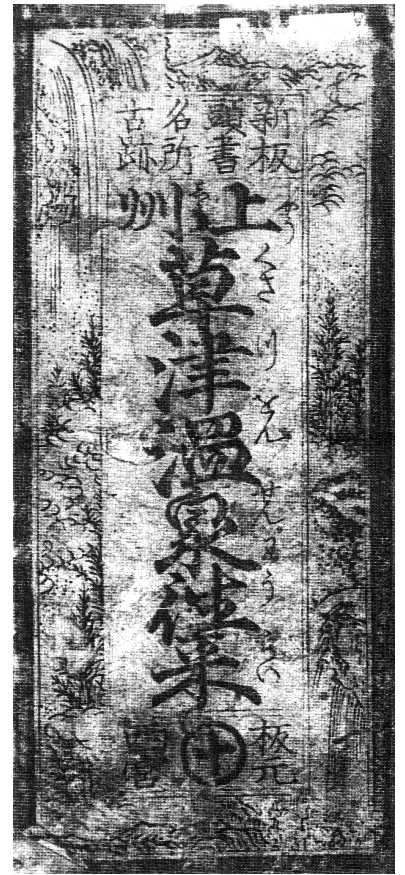 新板
頭書
名所
古跡
上州
草津温泉往来
くさつをんせんわうらい
板元